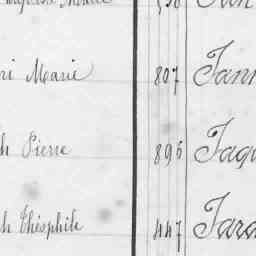 ri Marie 807 Jann
h Pierre 896 Jaqu
h Théophile 447 Jara